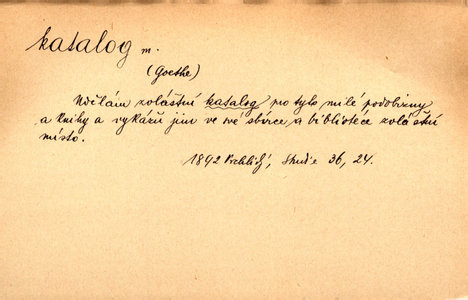 katalog m.
(Goethe)
Udělám zvláštní katalog pro tyto milé podobizny
a knihy a vykáži jim ve své sbírce a bibliotéce zvláštní
místo.
1892 Vrchlický, Studie 36, 24.